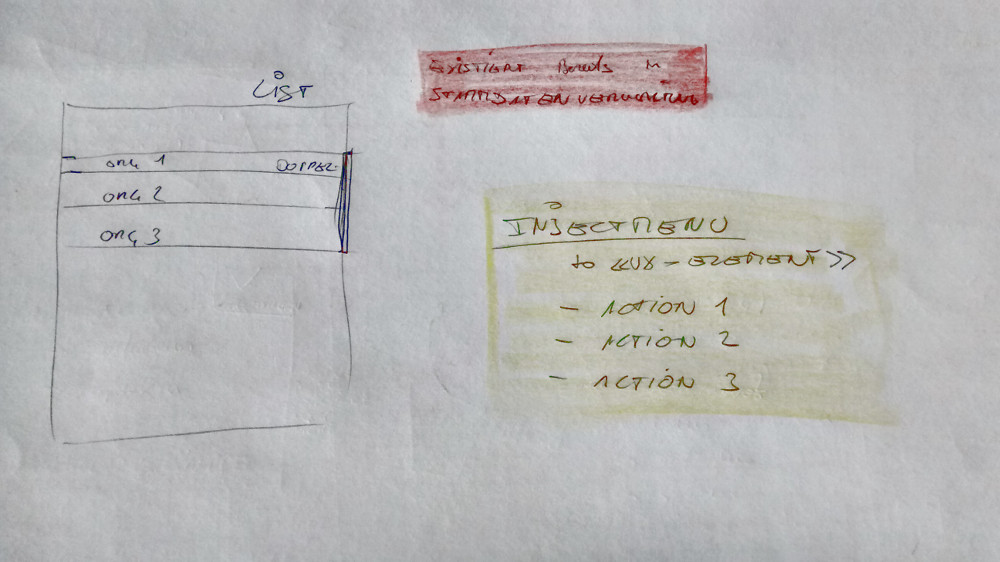 LIST
ORG 1 DOPPEL
ORG 2
ORG 3
EXISTIERT Bereits in
STAMMDATENVERWALTUNG
INJECTMENU
to <<UX-ELEMENT>>
- ACTION 1
- ACTION 2
- ACTION 3